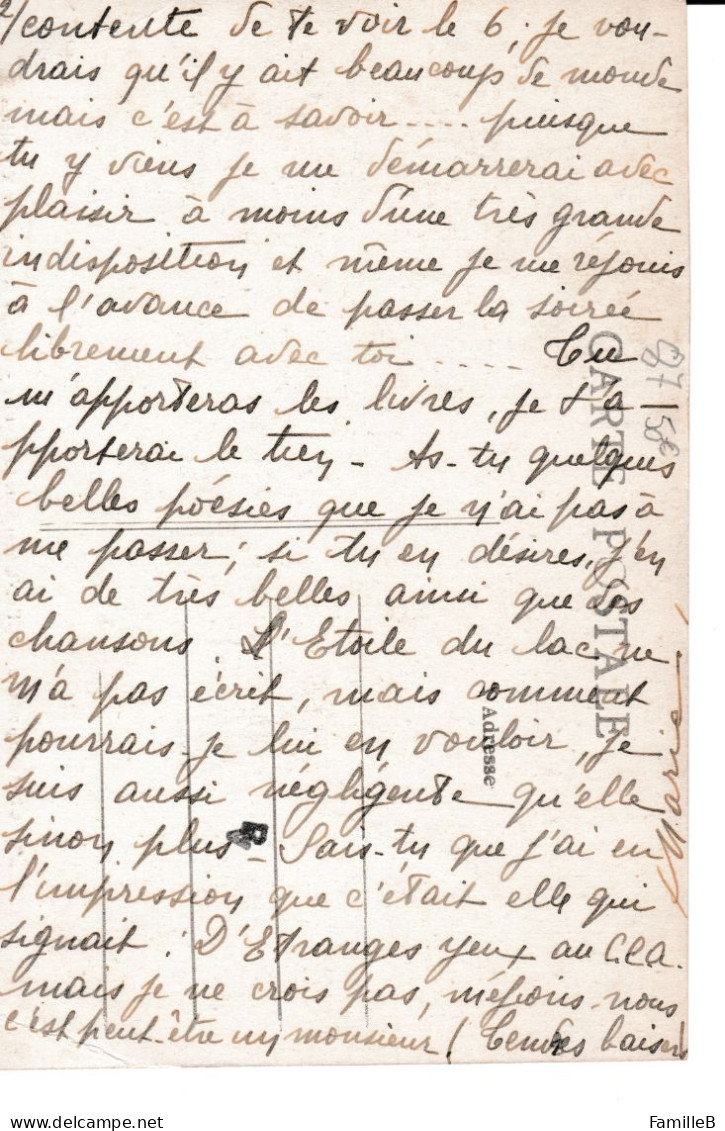 2/ contente de te voir le 6, je vou-
drais qu'il y ait beaucoup de monde
mais c'est à savoir .... puisque
tu y viens je me démarrerai avec
plaisir à moins d'une très grande
indisposition et même je me réjouis
à l'avance de passer la soirée
librement avec toi ..... Tu
m'apporteras les livres, je t'a-
pporterai le tien - As-tu quelques
belles poésies que je n'ai pas à
me passer; si tu en désires, j'en
ai de très belles ainsi que des
chansons. L'Etoile du lac ne
m'a pas écrit, mais comment
pourrais-je lui en vouloir, je
suis aussi négligente qu'elle
sinon plus - Sais-tu que j'ai eu
l'impression que c'était elle qui
signait : D'Etranges yeux au C.C.A.
mais je ne crois pas, méfions-nous
c'est peut-être un monsieur ! Tendres baisers
Marie
CARTE POSTALE
Adresse
50€
FamilleB